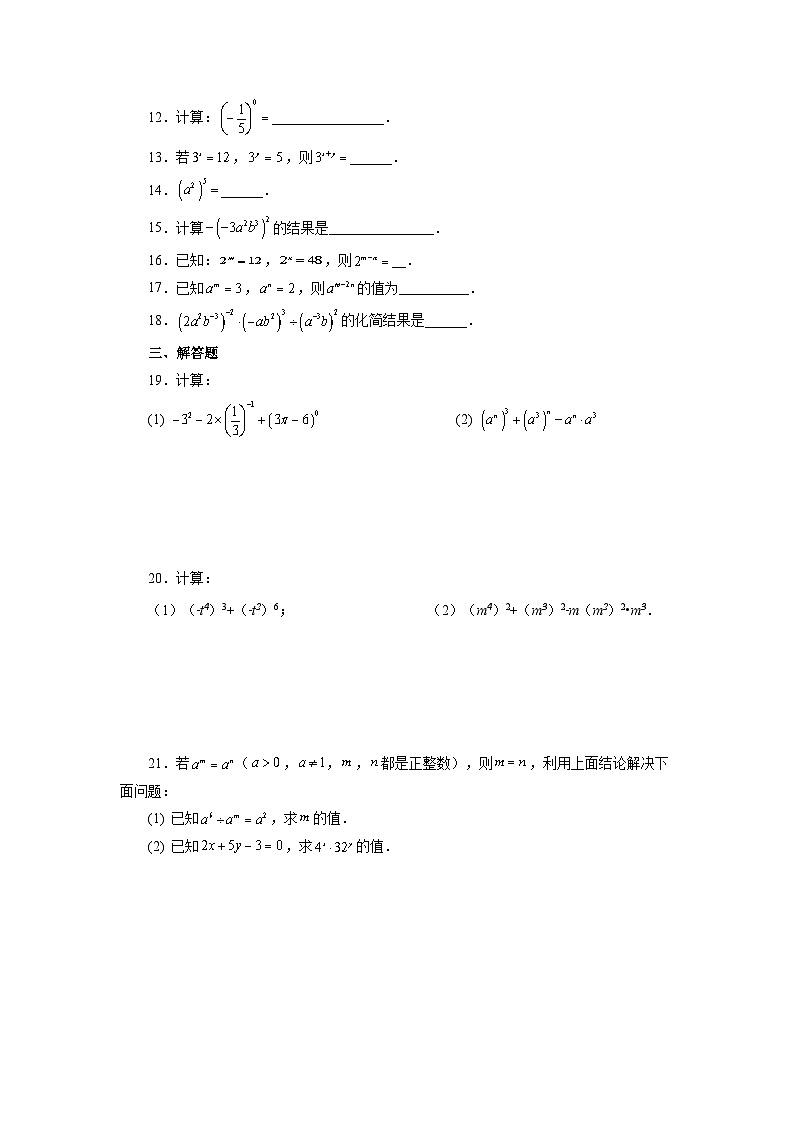 12．计算：(-1/5)^0=________________．
13．若3^x=12，3^y=5，则3^{x+y}=______．
14．(a^2)^5=______．
15．计算-(-3a^2b^3)^2的结果是_______________．
16．已知：2^m=12，2^n=48，则2^{m-n}=__．
17．已知a^m=3，a^n=2，则a^{m-2n}的值为__________．
18．(2a^2b^{-3})^{-2}·(-ab^2)^3÷(a^{-3}b)^2的化简结果是______．
三、解答题
19．计算：
(1) -3^2-2×(1/3)^{-1}+(3π-6)^0 (2) (a^n)^3+(a^3)^n-a^n·a^3
20．计算：
（1）（-t^4）^3+（-t^2）^6； （2）（m^4）^2+（m^3）^2-m（m^2）^2•m^3．
21．若a^m=a^n（a>0，a≠1，m，n都是正整数），则m=n，利用上面结论解决下
面问题：
(1) 已知a^6÷a^m=a^2，求m的值．
(2) 已知2x+5y-3=0，求4^x·32^y的值．